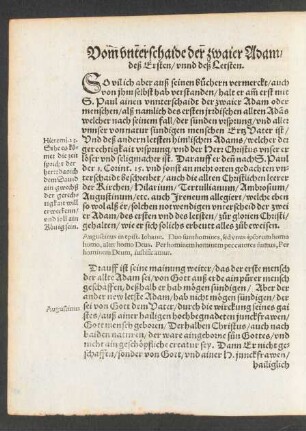 Vom̃ vnterschaide der zwaier Adam/
deß Ersten/ vnnd deß Letsten.
SO vil ich aber auß seinen büchern vermerckt/ auch
von jhm selbst hab verstanden/ halt er am erst mit
S. Paul ainen vnnterschaide der zwaier Adam oder
menschen/ als nämlich des ersten jrdischen alten Adãs
welcher nach seinem fall/ der sünden vrsprung/ vnd aller
vnnser von natur sündigen menschen Ertz Vater ist/
Vnd deß andern letsten him̃lischen Adams/ welcher der
gerechtigkait vrsprung/ vnd der Herr Christus vnser er
löser vnd seligmacher ist. Darauff er den nach S. Paul
der 1. Corint. 15. vnd sonst an mehr orten gedachten vn
terschaide beschreibt/ auch die alten Christlichen leerer
der Kirchen/ Hilarium/ Tertullianum/ Ambrosium/
Augustinum/ etc. auch Ireneum allegiert/ welche eben
so wol als er/ solchen notwendigen vnterschaide der zwei
er Adam/ des ersten vnd des letsten/ zur glorien Christi/
gehalten/ wie er sich solchs erbeut alles zübeweisen.
Hieremi. 23.
Sehe es kõ-
met die zeit
spricht der
herr das ich
dem Dauid
ein gewechß
der gerech-
tigkait will
erwecken/
vnd soll ain
König sein.
homo, alter homo Deus. Per hominem hominem peccatores sumus, Per
hominem Deum, iustificamur.
Drauff ist seine mainung weiter/ das der erste mensch
der alte Adam sei/ von Gott auß erde ain pürer mensch
geschaffen/ deßhalb er hab mögen sündigen/ Aber der
ander new letste Adam/ hab nicht mögen sündigen/ der
sei von Gott dem Vater/ durch die wirckung seines gai
stes/ auß ainer hailigen hochbegnadeten junckfrawen/
Gott mensch geboren. Derhalben Christus/ auch nach
baiden naturen/ der ware aingeborne sün Gottes/ vnd
nicht ain geschöpffliche creatur sey. Dann Er nicht ge-
schaffen/ sonder von Gott/ vnd ainer H. junckfrawen/
Augustinus
hailiglich